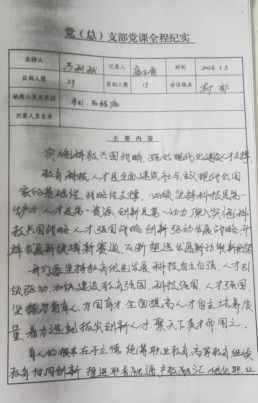 党（总）支部党课全程纪实
主持人 记录人 时间
应到人数 29 实到人数 15 会议地点 村部
缺席人员及原因
列席人员名单
主要内容
实施科教兴国战略 强化现代化建设人才支撑
教育、科技、人才是全面建设社会主义现代化国
家的基础性、战略性支撑，必须坚持科技是第一
生产力、人才是第一资源、创新是第一动力，深入实施科
教兴国战略、人才强国战略、创新驱动发展战略，开
辟发展新领域新赛道，不断塑造发展新动能新优势
我们要坚持教育优先发展、科技自立自强、人才引
领驱动，加快建设教育强国、科技强国、人才强国，
坚持为党育人、为国育才，全面提高人才自主培养质
量，着力造就拔尖创新人才，聚天下英才而用之。
育人的根本在于立德，统筹职业教育、高等教育、继续
教育协同创新，推进职普融通、产教融汇，优化职业